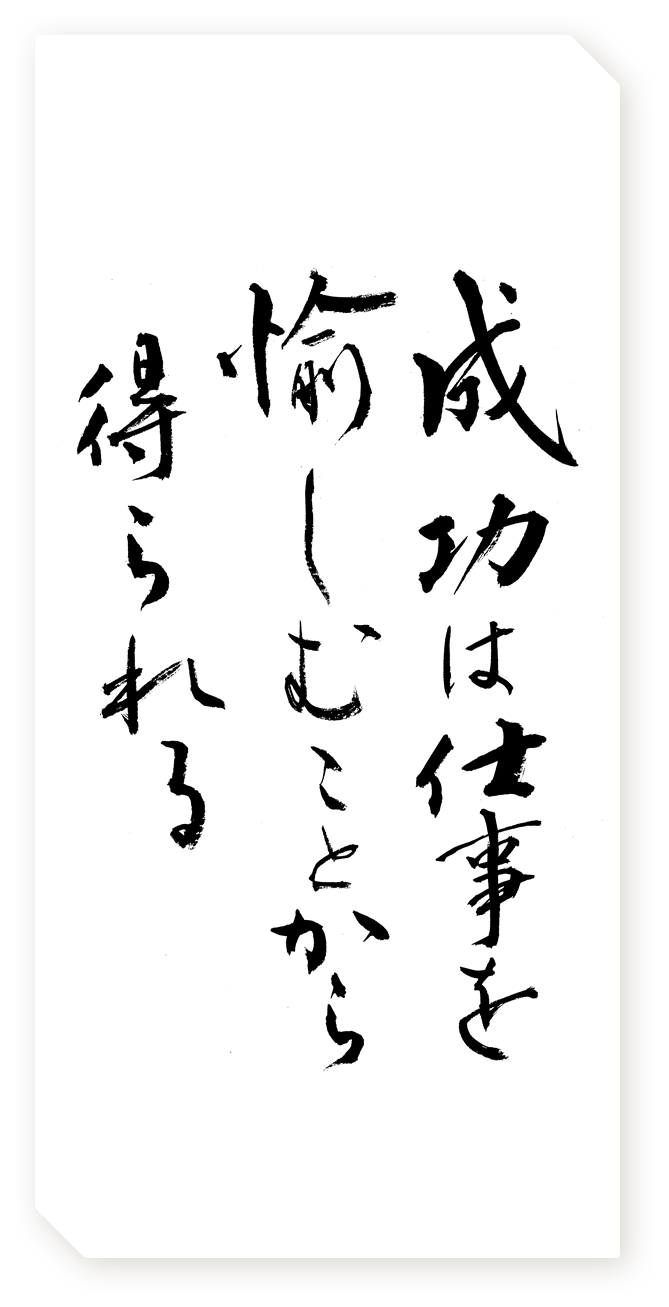 成功は仕事を
愉しむことから
得られる